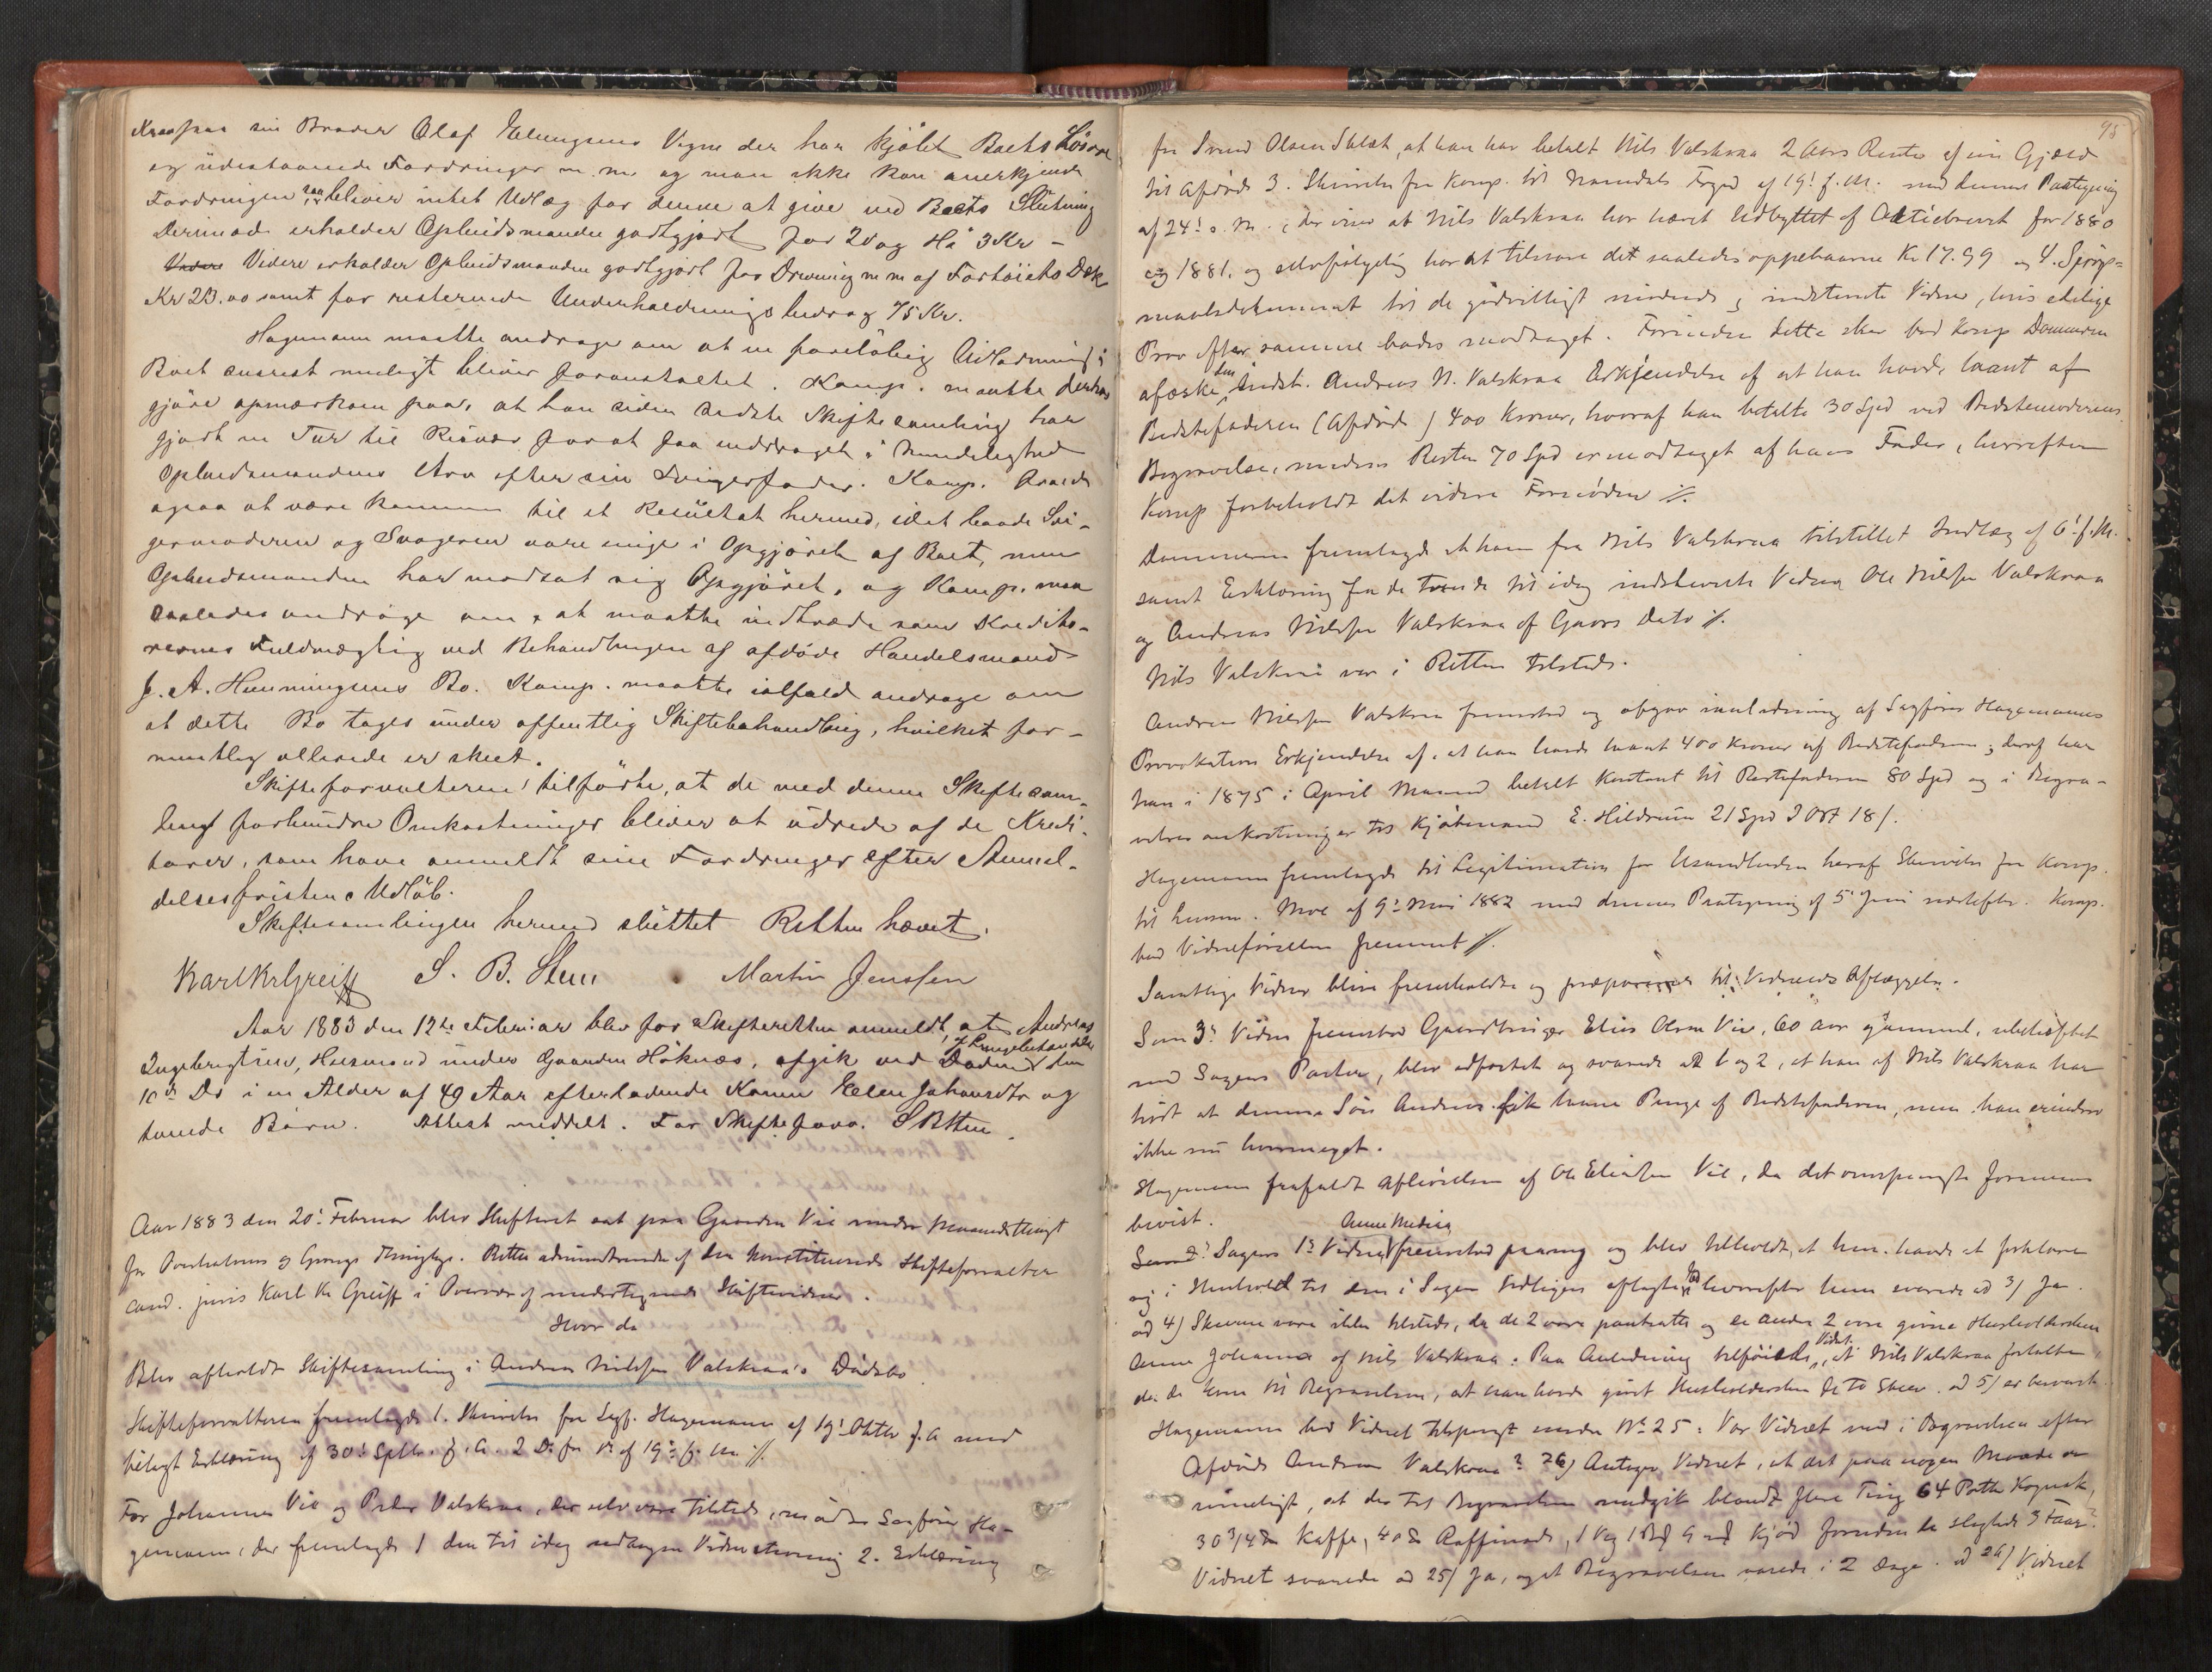 Krav paa sin Broder Olaf Elingsens Vegne der har kjøbt Boets Løsøre
og udestaaende Fordringer m.m. og man ikke kan anerkjende
Fordringen saa bliver intet Udlæg for denne at give ved Boets Slutning
Derimod erholder Opbudsmanden godtgjort for 2 Dag Hö 3 Kr –
Videre Videre erholder Opbudsmanden godtgjort for Drivning m m af Fartøiets Dæk
Kr 23.00 samt for resterende Underholdnings bidrag 75 Kr.
Hagemann maatte andrage om at en foreløbig Udlodning i
Boet snarest muligt bliver foranstaltet. Komp. maatte derhos
gjøre opmærksom paa, at han siden sidste Skiftesamling har
gjort en Tur til Risvær for at faa inddraget i Mindelighed
Opbudsmandens Arv efter sin Svigerfader. Komp. troede
ogsaa at være kommen til et Resultat hermed, idet baade Svi-
germoderen og Svogeren vare enige i Opgjøret af Boet, men
Opbudsmanden har modsat sig Opgjøret, og Komp. maa
saaledes andrage om, at maatte indtræde som Kredito-
rernes Fuldmægtig ved Behandlingen af afdøde Handelsmand
J. A. Henningsens Bo. Komp. maatte ialfald andrage om
at dette Bo tages under offentlig Skiftebehandling, hvilket for-
mentlig allerede er skeet.
Skifteforvalteren tilførte, at de med denne Skiftesam-
ling forbundne Omkostninger bliver at udrede af de Kredi-
torer, som have anmeldt sine Fordringer efter Anmel-
delsesfristens Udløb.
Skiftesamlingen hermed sluttet Retten hævet.
Karl Kr Greiff S. B. Sten Martin Jenssen
Aar 1883 den 12te Februar blev for Skifteretten anmeldt, at Andreas
Ingebrigtsen, Husmand under Gaarden Høknæs, afgik ved Døden den
10de Ds i en Alder af 49 Aar efterladende Konen Elen Johansdtr og
tvende Børn. Attest meddelt. For Skifteforv. S B Sten.
Aar 1883 den 20de Februar blev Skifteret sat paa Gaarden Vie under
for Overhalvens og Grongs Thinglag. Retten administrerede af den konstituerede Skifteforvalter
cand. juris Karl Kr Greiff i Overvær af undertegnede Skiftevidner.
Hvor da
Blev afholdt Skiftesamling i Andreas Nilssen Valskraa's Dødsbo
Skifteforvalteren fremlagde 1. Skrivelse fra Sagf. Hagemann af 19de Oktbr f. A med
bilagt Erklæring af 30de Septbr. f. A. 2 Do fra Do af 19de f. M. %.
For Johannes Vie og Peder Valskraa, der selv vare tilstede, mødte Sagfører Ha-
gemann, der fremlagde 1 den til idag udtagne Vidnestevning 2. Erklæring
95
fra Svend Olsen, at han har betalt Nils Valskraa 2 Aars Rente af sin Gjæld
til Afdøde 3. Skrivelse fra Komp. til Namdals Foged af 19de f. M. med dennes Paategning
af 24de s. M., der viser at Nils Valskraa har hævet Udbyttet af Aktiebrevet for 1880
og 1881. og selvfølgelig har at tilsvare det saaledes oppebaarne Kr 17.99 og 4. Spørgs-
maalsdokument til de godvilligt mødende og indstevnte Vidner, hvis edelige
Prov efter samme bades modtaget. Forinden dette sker bad Komp Dommeren
afæske den Indst. Andreas N. Valskraa Erkjendelse af at han havde laant af
Bedstefaderen (Afdøde) 400 Kroner, hvoraf han betalte 30 Spd ved Bedstemoderens
Begravelse, medens Resten 70 Spd er modtaget af hans Fader, hvorefter
Komp forbeholdt det videre Fornødne %.
Dommeren fremlagde et ham fra Nils Valskraa tilstillet Indlæg af 6te f. M.
samt Erklæring fra de tvende til idag indstevnte Vidner Ole Nilssen Valskraa
og Andreas Nilssen Valskraa af Gaars Dato %.
Nils Valskraa var i Retten tilstede.
Andreas Nilssen Valskraa fremstod og afgav i anledning af Sagfører Hagemanns
Provokation Erkjendelse af at han havde laant 400 Kroner af Bedstefaderen; deraf har
han i 1875 i April Maaned betalt Kontant til Bestefaderen 80 Spd og i Begra-
velsesomkostninger til Kjøbmand E. Hildrum 21 Spd 2 Ort 18 s.
Hagemann fremlagde til Legitimation for Usandheden heraf Skrivelse fra Komp.
til. Moe af 9de Mai 1882 med dennes Paategning af 5te Juni næstefter. Komp.
bad Vidneførselen fremmet %.
Samtlige Vidner bleve fremkaldte og præparerede til Vidneeds Aflæggelse.
Som 3de Vidne fremstod Gaardbruger Elias Olsen Vie, 60 Aar gammel, ubeslægtet
med Sagens Parter, blev edfæstet og svarede ad 1 og 2, at han af Nils Valskraa har
hørt at dennes Søn Andreas fik laane Penge af Bedstefaderen, men han erindrer
ikke nu hvormeget.
Hagemann frafaldt Afhørelsen af Ole Eliassen Vie, da det omspurgte formenes
bevist.
Som 2 Sagens 1ste Vidne Anne Medisa fremstod paany og blev tilholdt, at hun havde at forklare
sig i Henhold til den i Sagen tidligere aflagte Ed hvorefter hun svarede ad 3/ Ja.
ad 4) Skeerne vare ikke tilstede, da de 2 vare pantsatte og de andre 2 vare givne Husholdersken
Anne Johanna af Nils Valskraa. Paa Anledning tilføiede Vidnet, at Nils Valskraa fortalte,
da de kom til Begravelsen, at han havde givet Husholdersken de to Skeer. ad 5/ er besvaret
Hagemann bad Vidnet tilspurgt under No 25: Var Vidnet med i Begravelsen efter
Afdøde Andreas Valskraa? 26) Antager Vidnet, at det paa nogen Maade er
rimeligt, at der til Begravelsen medgik blandt flere Ting 64 Potter Kognak,
30 3/4 ℔ Kaffe, 40 ℔ Raffinade, 1 Vog 1 Bp 9 mk Kjød foruden de slagtede 3 Faar?
Vidnet svarede ad 25/ Ja, og at Begravelsen varede i 2 Dage. ad 26/ Vidnet